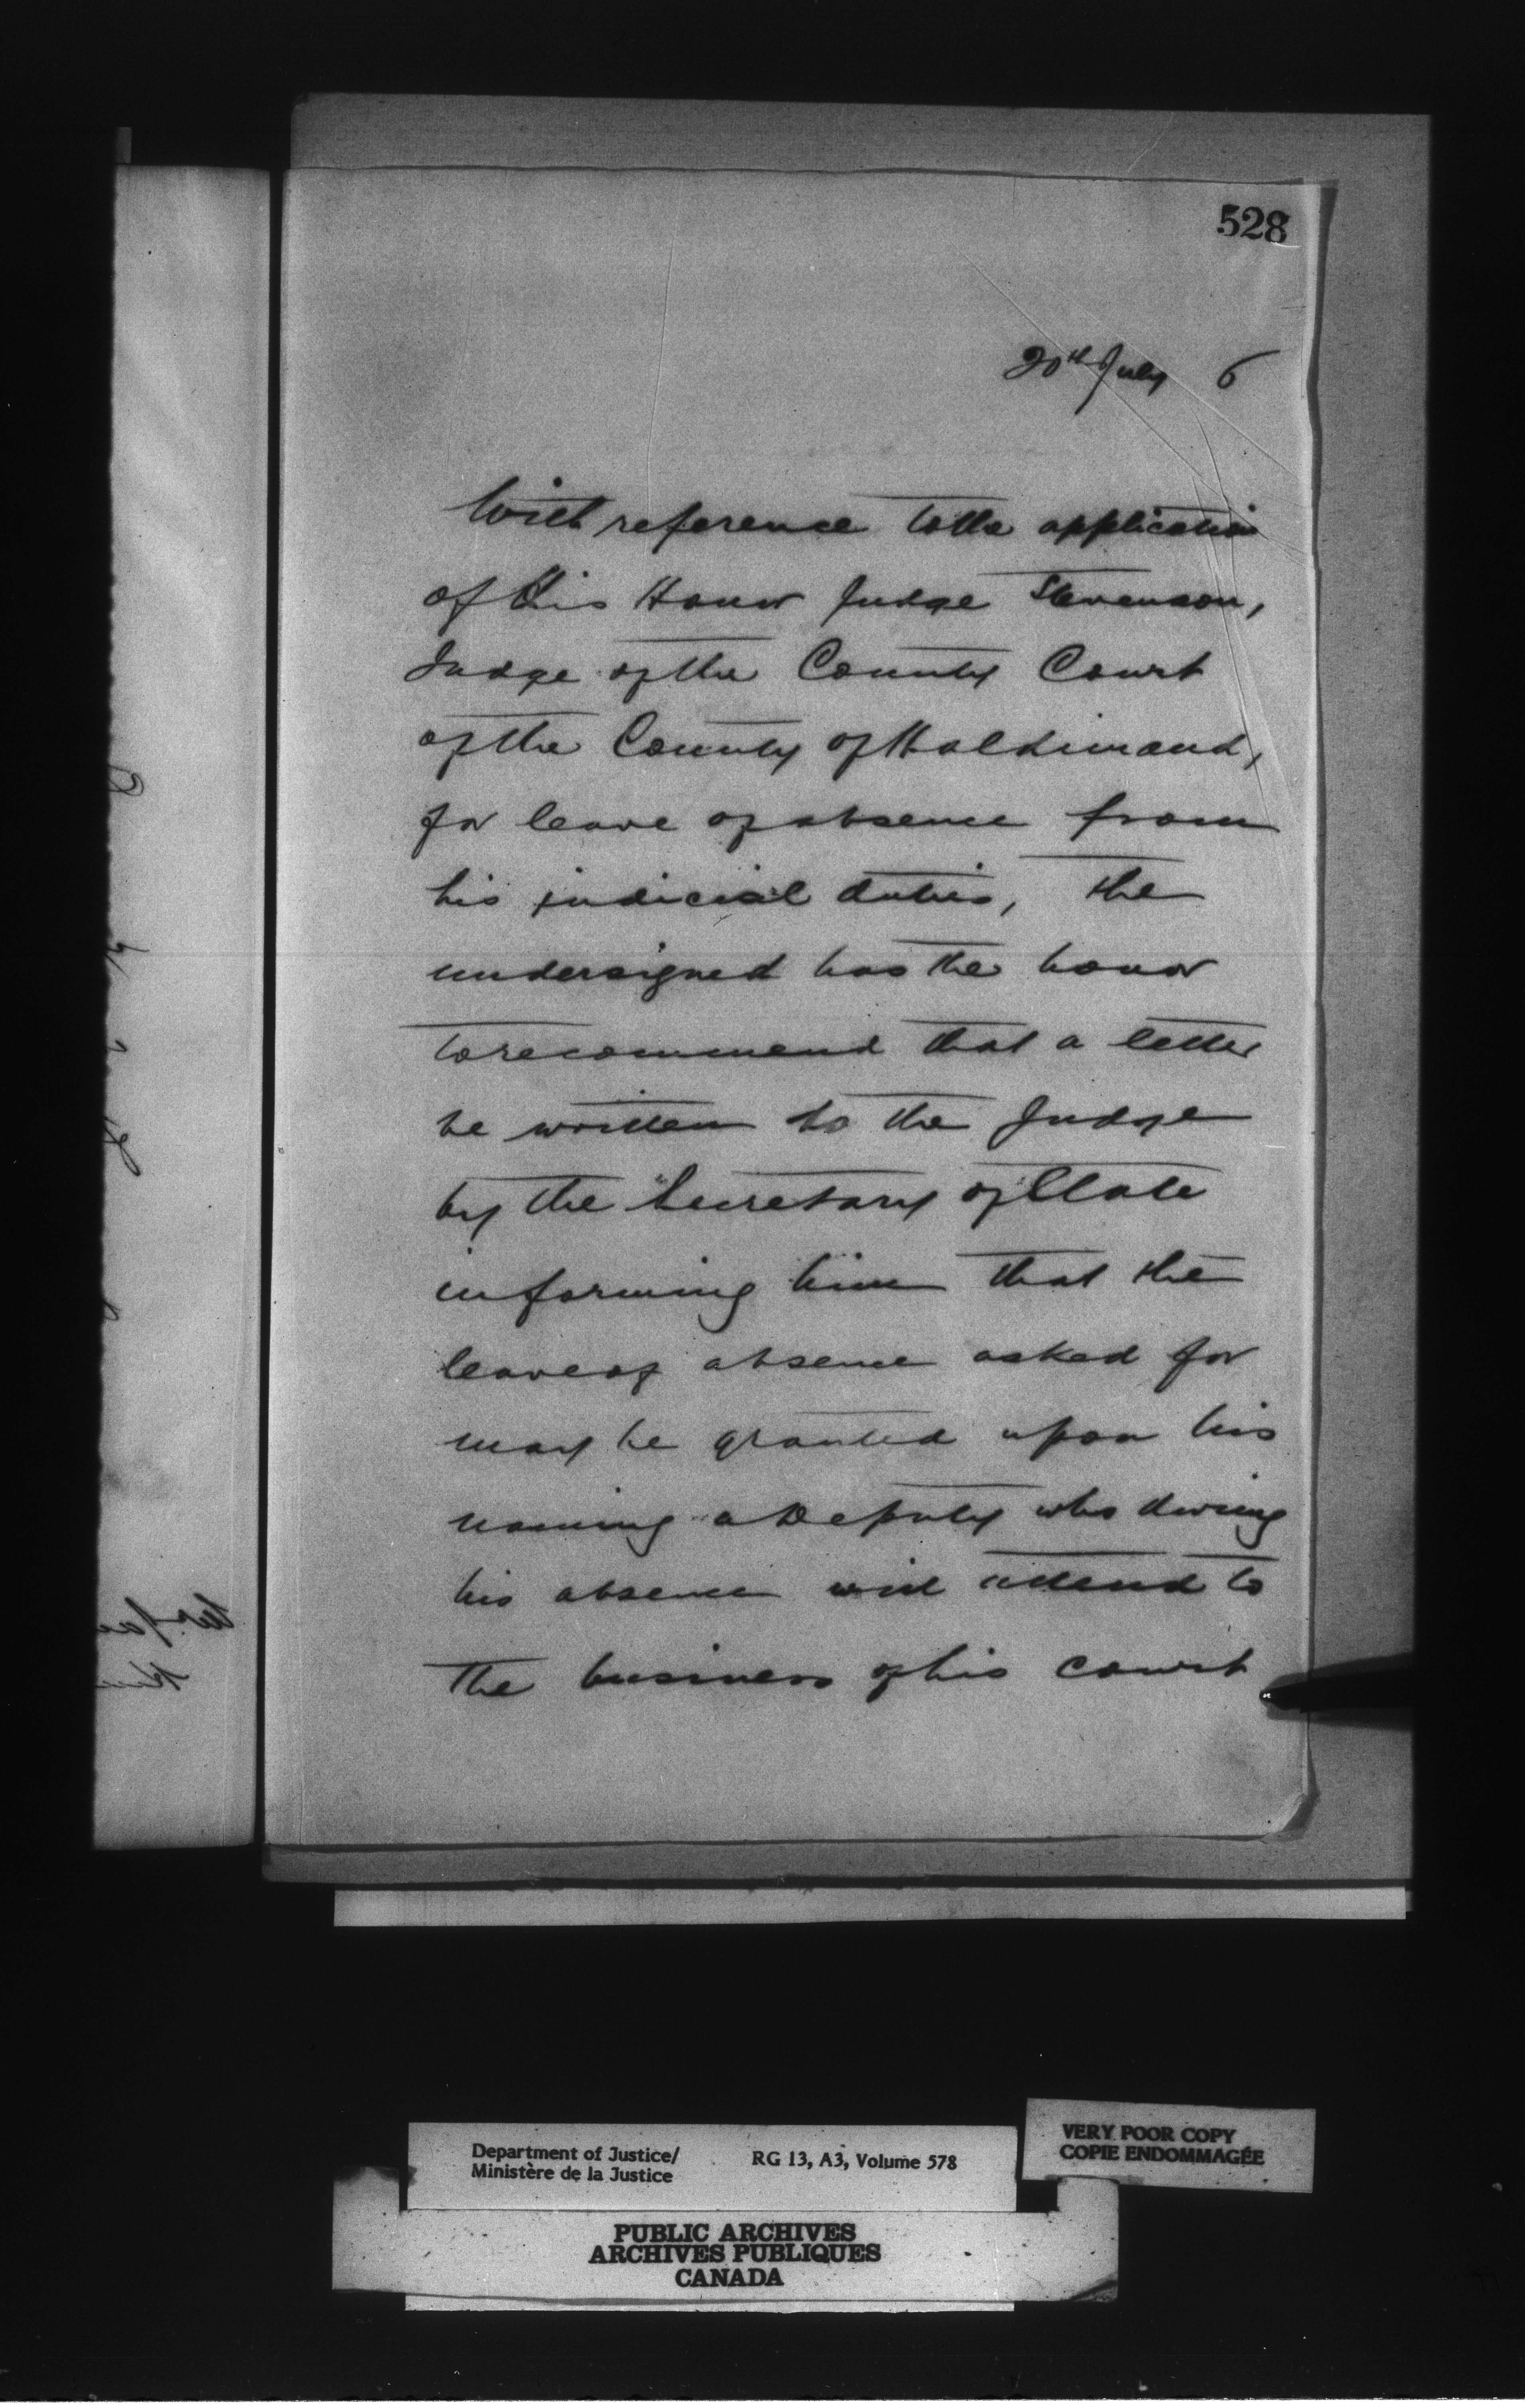 528
20th July 6
With reference to the application
of His Honor Judge Stevenson,
Judge of the County Court
of the County of Haldimand,
for leave of absence from
his judicial duties, the
undersigned has the honor
to recommend that a letter
be written to the Judge
by the Secretary of State
informing him that the
leave of absence asked for
may be granted upon his
naming a Deputy who during
his absence will attend to
the business of his court
Department of Justice/
Ministère de la Justice
RG 13, A3, Volume 578
VERY POOR COPY
COPIE ENDOMMAGÉE
PUBLIC ARCHIVES
ARCHIVES PUBLIQUES
CANADA